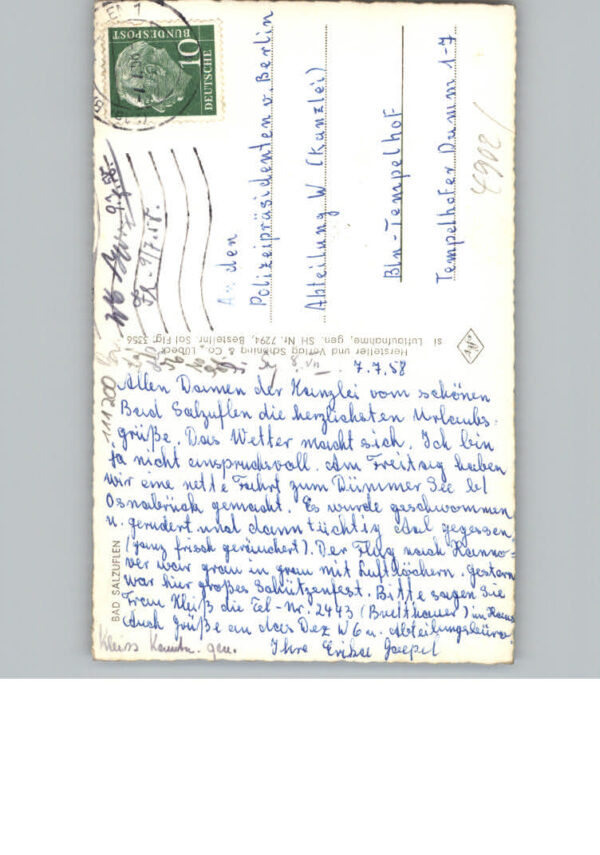 7.7.58
Allen Damen der Kanzlei vom schönen
Bad Salzuflen die herzlichsten Urlaubs-
grüße. Das Wetter macht sich. Ich bin
ja nicht anspruchsvoll. Am Freitag haben
wir eine nette Fahrt zum Dümmer See b/
Osnabrück gemacht. Es wurde geschwommen
u. gerudert und dann tüchtig Aal gegessen
(ganz frisch geräuchert). Der Flug nach Hanno-
ver war grau in grau mit Luftlöchern. Gestern
war hier großes Schützenfest. Bitte sagen Sie
Frau Kleiß die Tel-Nr. 2443 (Breithauer) im Haus
Auch grüße an das Dez W 6 u. Abteilungsbüro
Ihre Erika
BAD SALZUFLEN
Hersteller und Verlag Schöning & Co., Lübeck
si Luftaufnahme, gen. SH Nr. 7294, Bestellnr. Sal Flg. 3256
An den
Polizeipräsidenten v. Berlin
Abteilung W (Kanzlei)
Bln-Tempelhof
Tempelhofer Damm 1-7
DEUTSCHE
BUNDESPOST
10
4902/
111200
9/7.58.